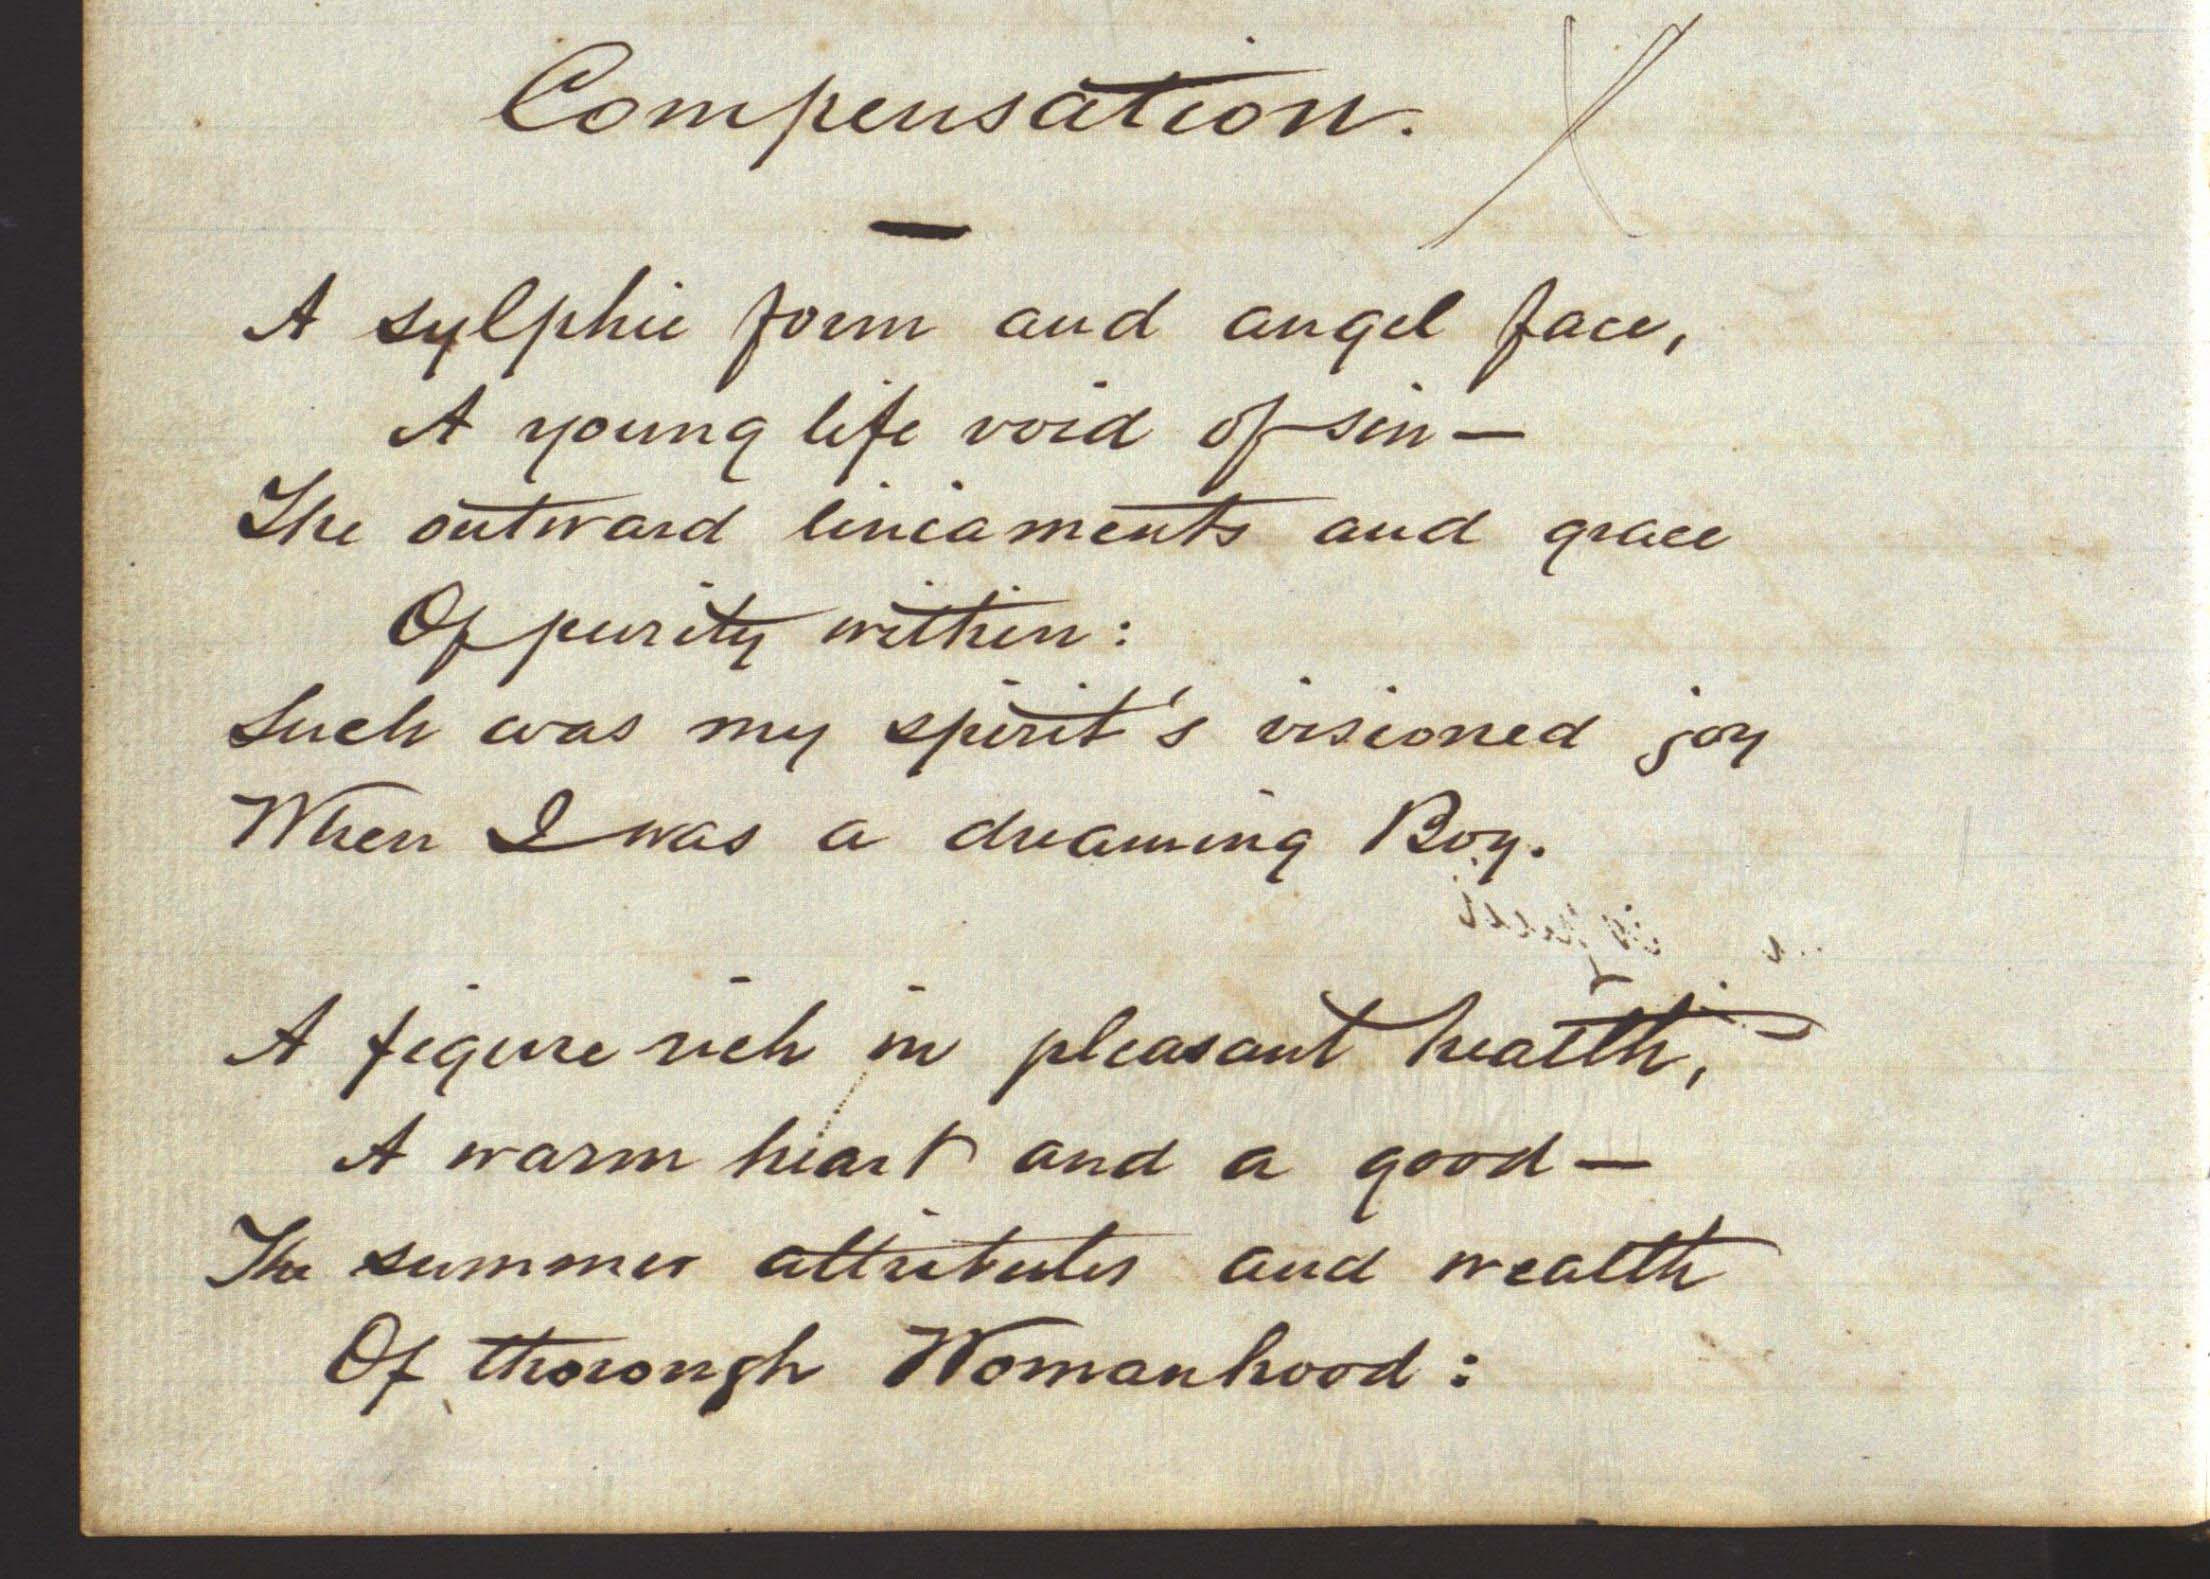 Compensation.
A sylphic form and angel face,
A young life void of sin—
The outward lineaments and grace
Of purity within:
Such was my spirit's visioned joy
When I was a dreaming Boy.
A figure rich in pleasant health,
A warm heart and a good—
The summer attributes and wealth
Of thorough Womanhood: